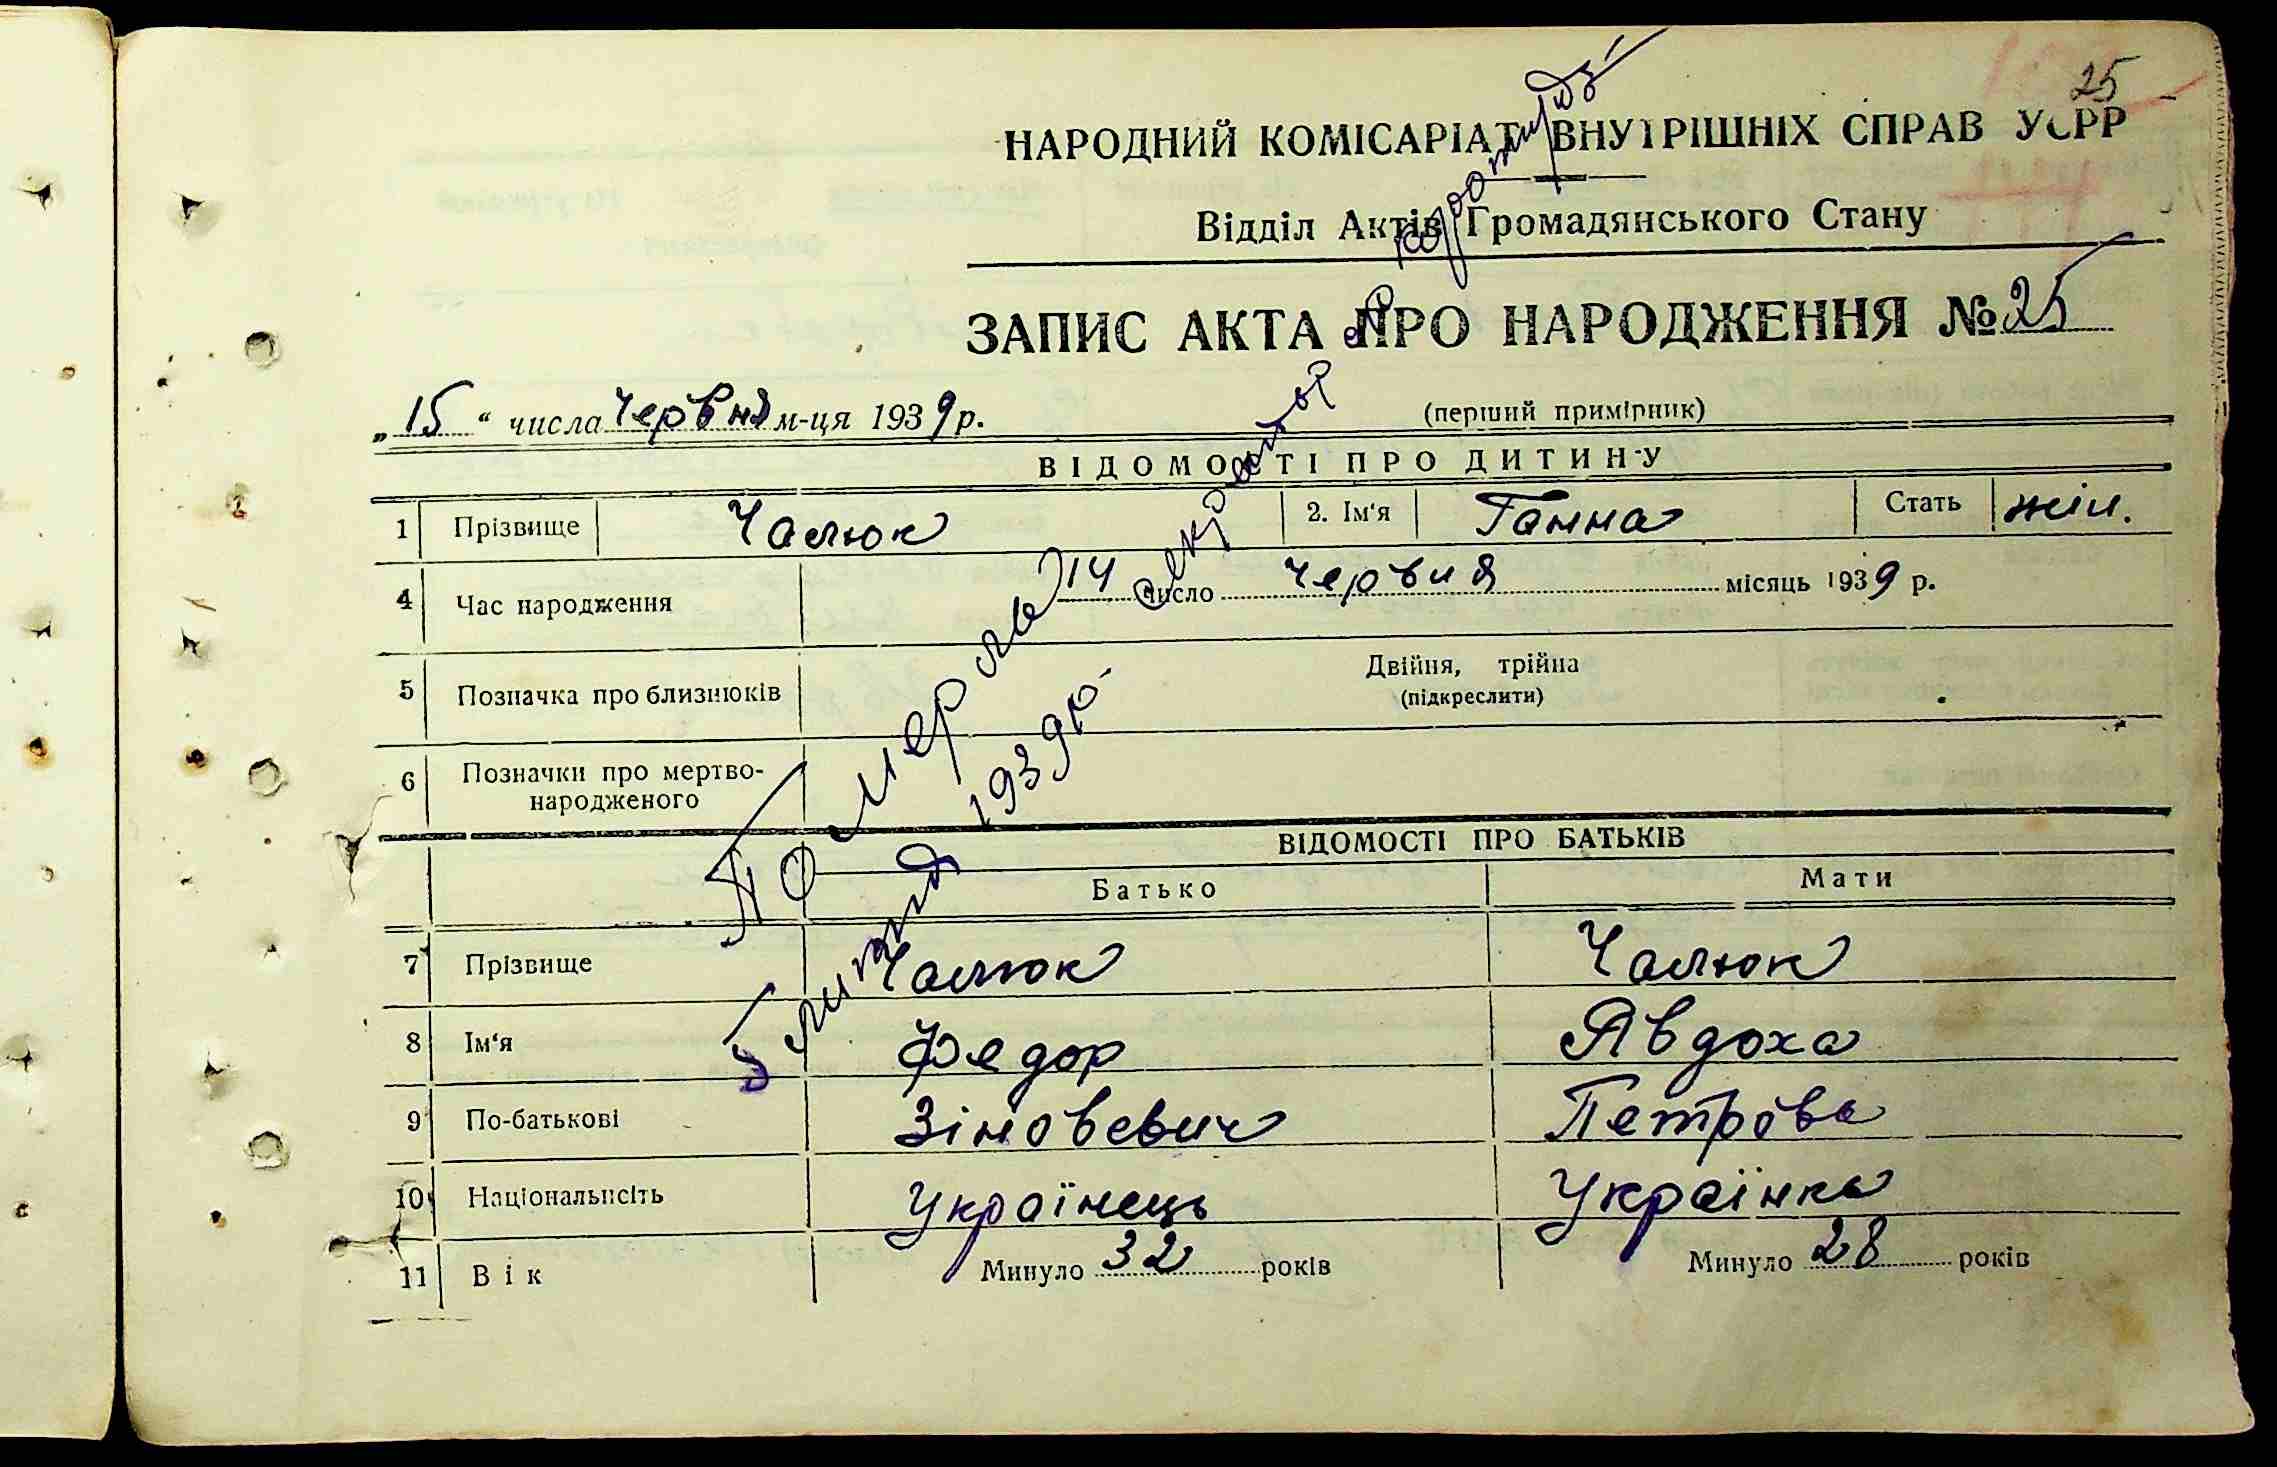 25
НАРОДНИЙ КОМІСАРІАТ ВНУТРІШНІХ СПРАВ УСРР
Відділ Актів Громадянського Стану
ЗАПИС АКТА ПРО НАРОДЖЕННЯ № 25
„15“ числа Червня м-ця 1939 р.
(перший примірник)
ВІДОМОСТІ ПРО ДИТИНУ
1 Прізвище Чалюк 2. Ім'я Ганна Стать жін.
4 Час народження 14 число червня місяць 1939 р.
5 Позначка про близнюків Двійня, трійна
(підкреслити)
6 Позначки про мертво-
народженого
Померла
5 1939 р.
ВІДОМОСТІ ПРО БАТЬКІВ
Батько Мати
7 Прізвище Чалюк Чалюк
8 Ім'я Федор Явдоха
9 По-батькові Зіновевич Петрова
10 Національність Українець Українка
11 Вік Минуло 32 років Минуло 28 років